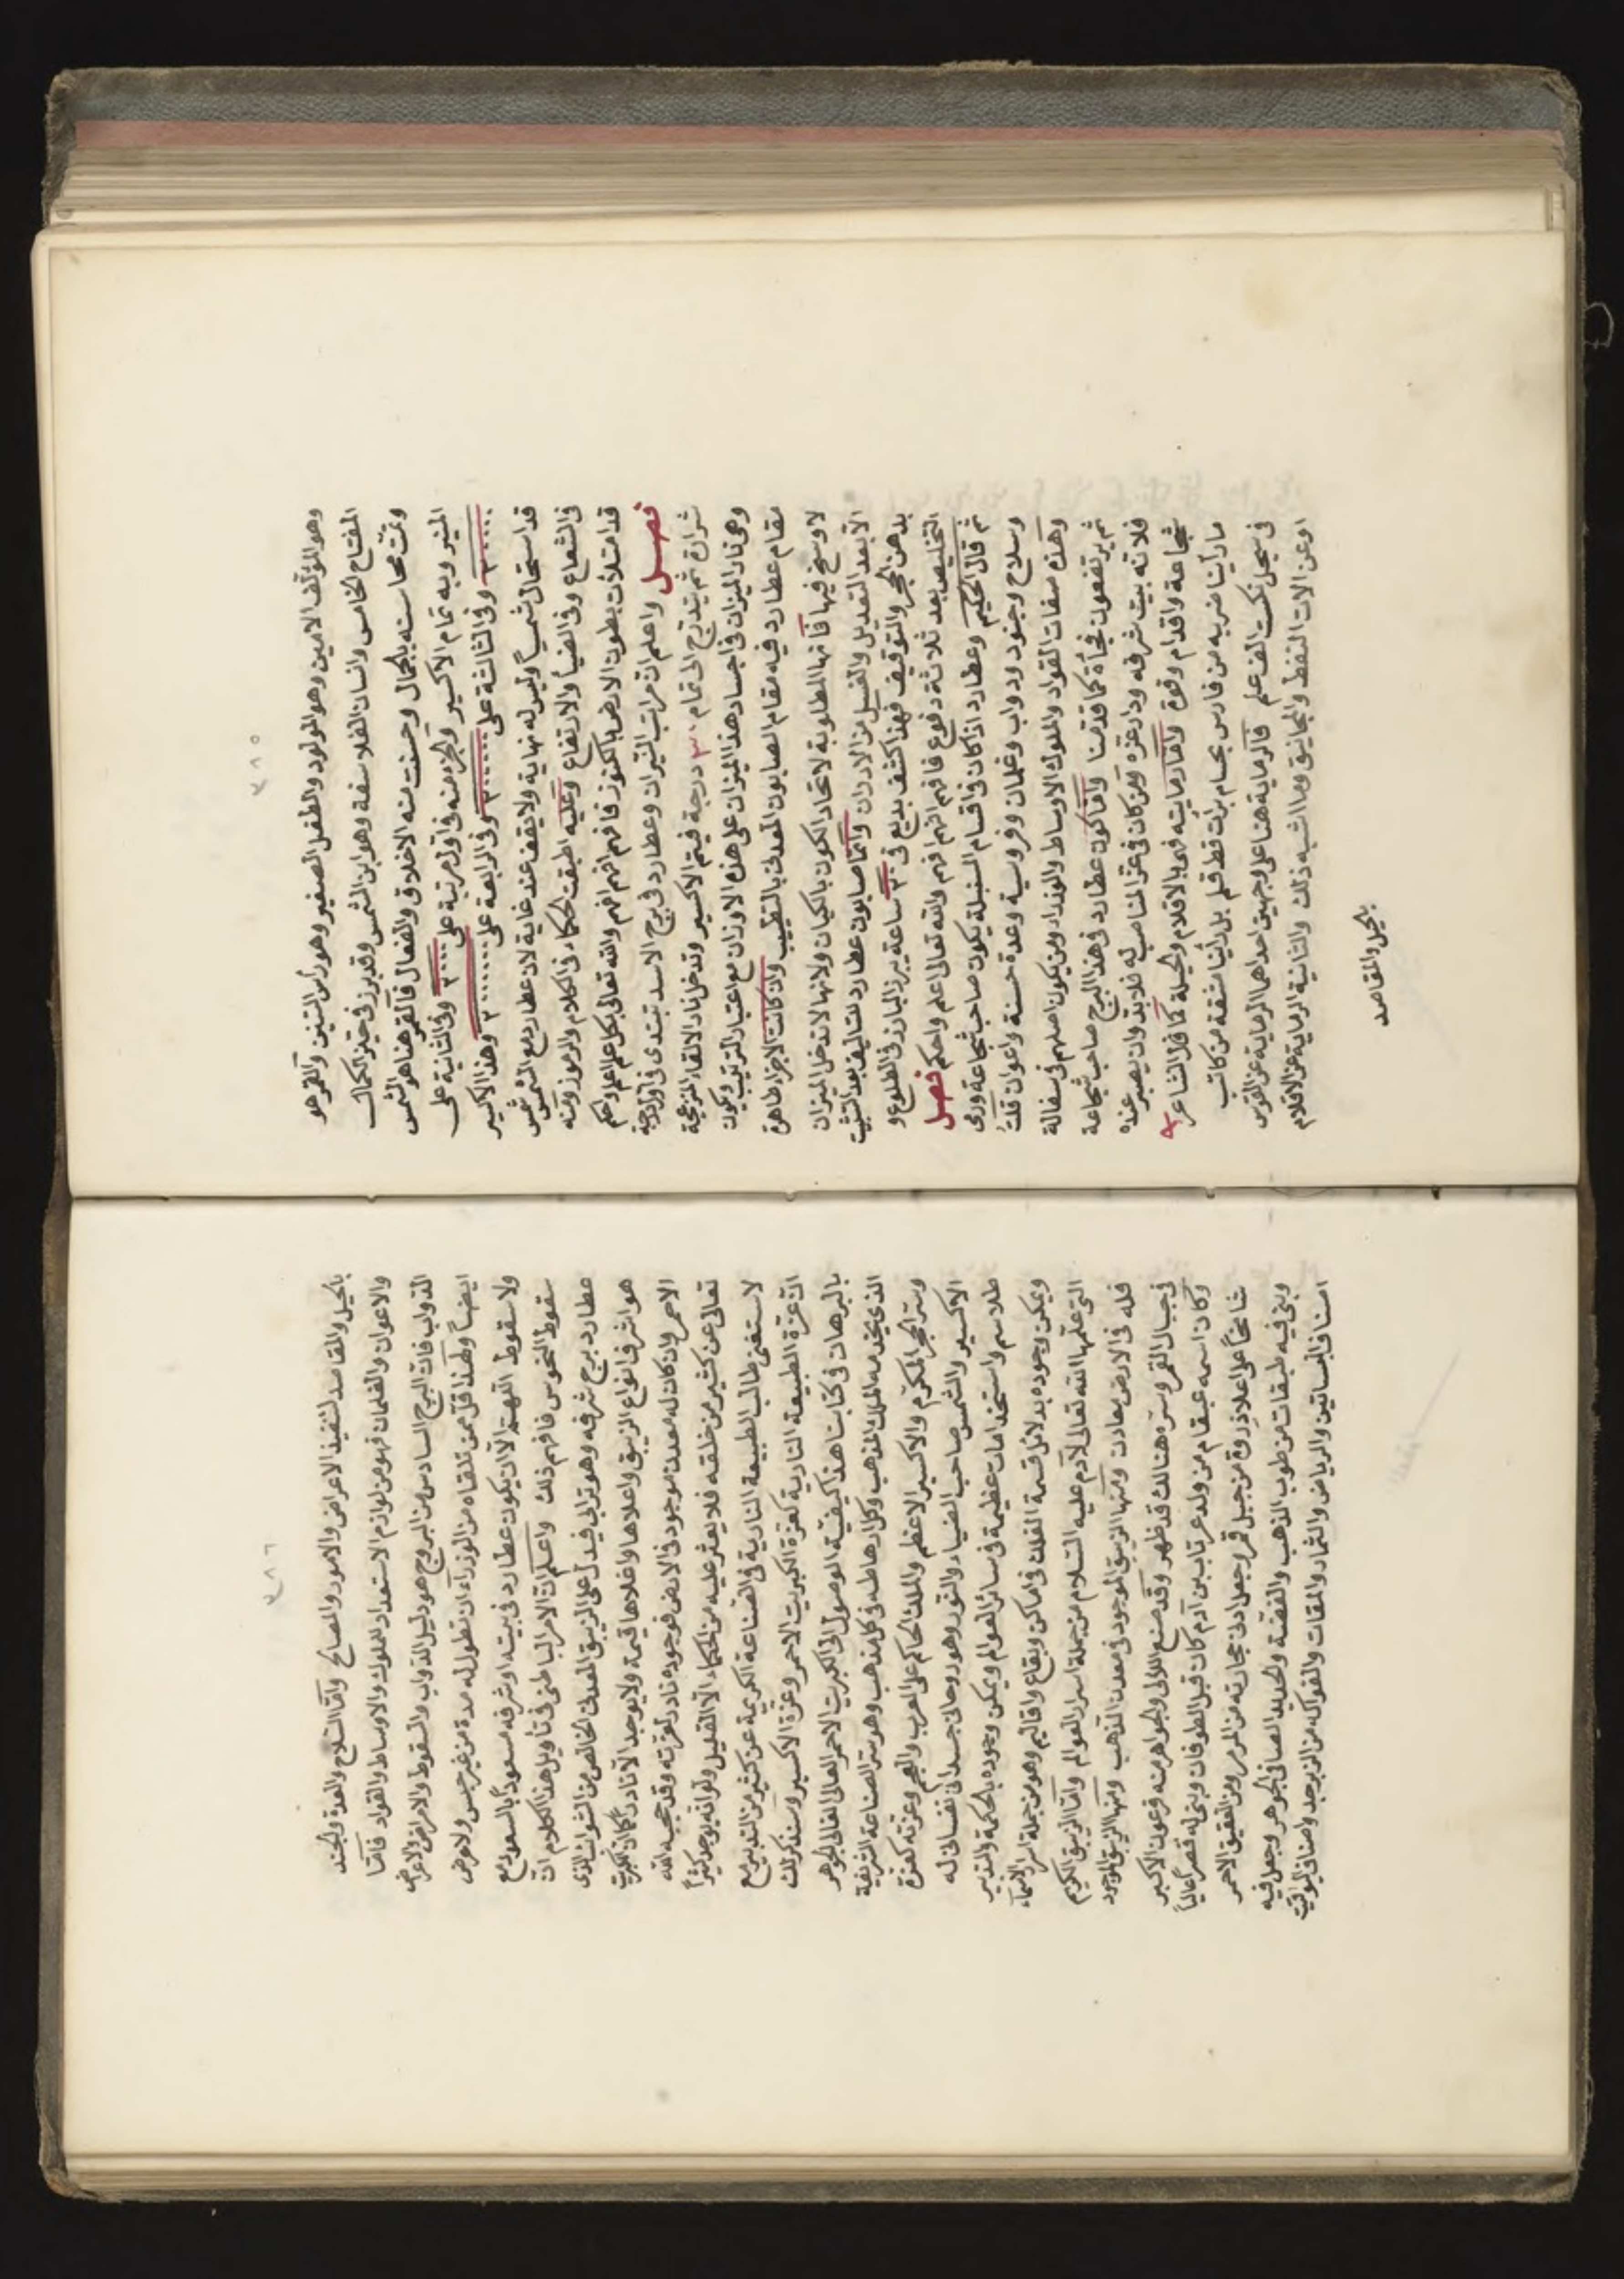 ٣٨٥
وهو المؤلف الامين وهو المولود والطفل الصغير وهو رأس التنين والقمر هو
المفتاح الخامس وانسان الفلاسفة وهو ابن الشمس وقد برز في حيّز الكمال
وتمّت محاسنه بالجمال وحسنت منه الاخلاق والفعال فالقمر هنا هو الشمس
المنير وبه تمام الاكسير والجزء منه في اول مرتبة على
وفي الثانية على
وفي الثالثة على
وفي الرابعة على
وهذا الاكسير
قد استحال شمسياً وليس له نهاية ولا يقف عند غاية لان عطارد مع الشمس شمس
في الشعاع وفي الضياء والارتفاع وعليه اطبقت الحكماء في الكلام والرموز ومنه
قد امتلأت بطون الارض بالكنوز فافهم افهم افهم والله تعالى بكل علم اعلم واحكم
فصل واعلم ان مراتب النيران وعطارد في برج الاسد تبتدى في اول درجة
شرارة ثم يتدرج الى تمام ٣٠ درجة فيتم الاكسير وتدخل نار الالقاء المزعجة
وهي نار الميزان في اجساد هذا الميزان على هذه الاوزان مع اعتبار الترتيب ويكون
مقام عطارد فيه مقام الصابون المعدني بالتطبيب وان كانت الاجزاء طاهرة
لا وسخ فيها فانها المطلوبة لاتحاد الكون بالكيان ولانها لا تدخل الميزان
الا بعد التعديل والغسيل من الادران وانما صابون عطارد للتاليف بعد التثبيت
بدهن الحجر والتوقيف فهذا كشف بديع في ٣٠ ساعة يبرز البارز في الطلوع و
التخليص بعد ثلاثة دفوع فافهم افهم افهم والله تعالى اعلم واحكم فصل
ثم قال الحكيم وعطارد اذا كان في اقسام السنبلة يكون صاحب شجاعة ورمى
وسلاح وجنود ودواب وغلمان وفروسية وعدة حسنة واعوان قلت
وهذه صفات القواد والملوك الاوساط والوزراء ومن يكون اصلهم في سفالة
ثم يرتفعون فجأة كما قدمنا واما كون عطارد في هذا البرج صاحب شجاعة
فلانه بيت شرفه ودار عزه ومن كان في عز المناصب له فلا بد وان يصير عنده
شجاعة واقدام وقوة واما رمايته فهي بالاقلام والحيلة كما قال الشاعر
ما رأينا ضربه من فارس بحسام برأت قط قلم بل رأينا مشقة من كاتب
في سجل نكست الف علم فالرماية هنا على وجهين احداهما الرماية عن القوس
او عن الات النفط والمجانيق وما اشبه ذلك والثانية الرماية عن الاقلام
بالحيل والمقاصد
٣٨٦
بالحيل والمقاصد لتنفيذ الاعراض والامور والمصالح واما السلاح والعدة والجند
والاعوان والغلمان فهو من لوازم الاستعداد للملوك والاوساط والقواد فاما
الدواب فان البرج السادس من البروج هو دليل الدواب والسقوط والامراض والاعراض
ايضاً ولهذا قل من تلقاه من الوزراء ان تطول له مدة من غير حبس ولا مرض
ولا سقوط اللهم الا ان يكون عطارد في بيته او شرفه مسعوداً بالسعود مع
سقوط النحوس فافهم ذلك واعلم ان الامر الباطني في تأويل هذا الكلام ان
عطارد برج شرفه وهو ترابي فيدل على الزيبق المعدني الخالص من الشوائب الذي
هو اشرف انواع الزيبق واعلاها واغلاها قيمة ولا يوجد الا نادراً كما ان الكبريت
الاحمر وان كان له معدن موجود في الارض فوجوده نادر لعزته وقد حجبه الله
تعالى عن كثير من خلقه فلا يعثر عليه من الحكماء الا القليل ولو انه يوجد كثيراً
لاستغنى طالب الطبيعة النارية في الصناعة الكريمة عن كثير من التدبير مع
ان عزة الطبيعة النارية كعزة الكبريت الاحمر وعزة الاكسير وسنذكر لك
بالبرهان في كتابنا هذا كيفية الوصول الى الكبريت الاحمر العالي الغالي الجوهر
الذي يخدمه الملك المذهب وكل ارهاطه في كل مذهب وهو ستر الصناعة الشريفة
وستر الحجر المكرم والاكسير الاعظم والملك الحاكم على العرب والعجم وعزته كعزة
الاكسير والشمس صاحب الضياء والنور وهو روحاني جسداني نفساني له
طلاسم واستخدامات عظيمة في سائر العوالم ويمكن وجوده بالحكمة والتدبير
ويمكن وجوده بدلائل قسمة الفلك في اماكن وبقاع واقاليم وهو من جملة اسرار الاسماء
التي علمها الله تعالى لآدم عليه السلام من جملة اسرار العوالم واما الزيبق الكريم
فله في الارض معادن ومنها الزيبق الموجود في معدن الذهب ومنها الزيبق الموجود
في جبال القمر وسره هنالك قد ظهر وقد صنع اللالي والجواهر منه فرعون الاكبر
وكان اسمه عيقام من ولد عرتاب بن آدم كان قبل الطوفان وبنى له قصراً عالياً
شامخاً على اعلا ذروة من جبل قمر وجعل ادنى حجارته من المرمر ومن العقيق الاحمر
وبنى فيه طبقات من طوب الذهب والفضة والحديد الصافي الجوهر وجعل فيه
اصناف البساتين والرياض والثمار والمقات والفواكه من الزبرجد واصناف اليواقيت